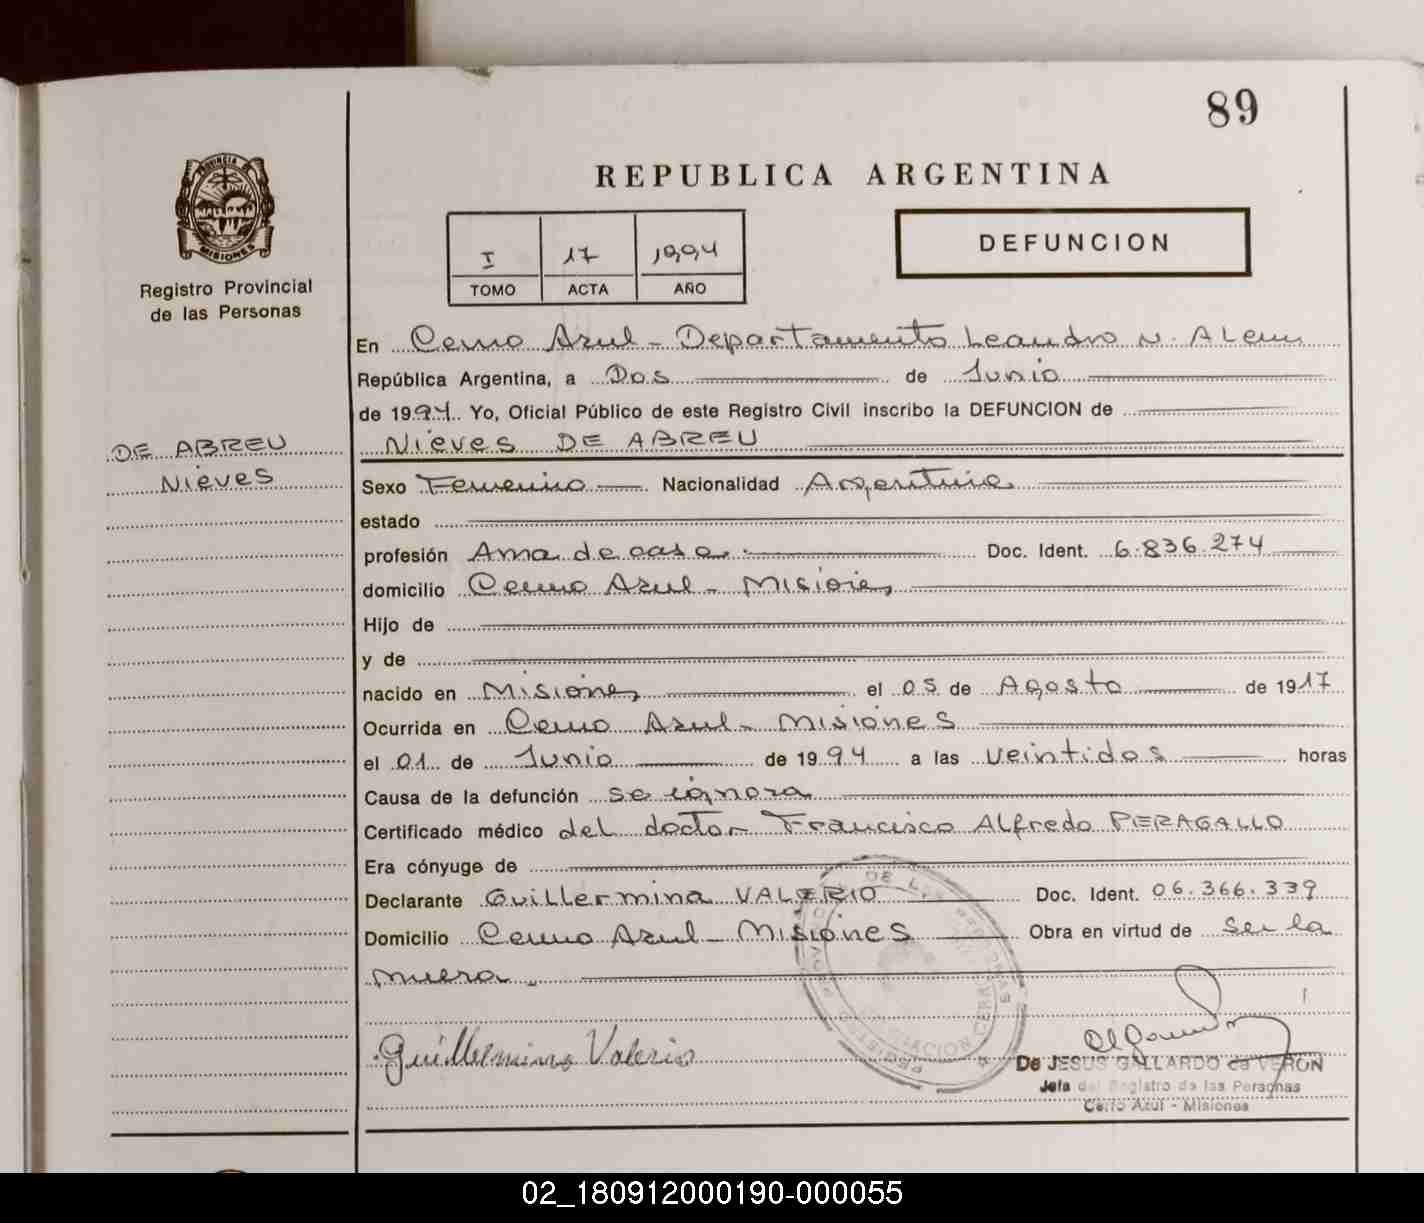 89
PROVINCIA DE
MISIONES
Registro Provincial
de las Personas
REPUBLICA ARGENTINA
I 17 1994
TOMO ACTA AÑO
DEFUNCION
DE ABREU
Nieves
En Cerro Azul - Departamento Leandro N. Alem
República Argentina, a Dos de Junio
de 1994. Yo, Oficial Público de este Registro Civil inscribo la DEFUNCION de
Nieves DE ABREU
Sexo Femenino Nacionalidad Argentina
estado
profesión Ama de casa. Doc. Ident. 6.836.274
domicilio Cerro Azul - Misiones
Hijo de
y de
nacido en Misiones el 05 de Agosto de 1917
Ocurrida en Cerro Azul - Misiones
el 01 de Junio de 1994 a las veintidos horas
Causa de la defunción se ignora
Certificado médico del doctor Francisco Alfredo PERAGALLO
Era cónyuge de
Declarante Guillermina VALERIO Doc. Ident. 06.366.339
Domicilio Cerro Azul - Misiones Obra en virtud de ser la
nuera.
Guillermina Valerio
De JESUS GALLARDO de VERON
Jefa del Registro de las Personas
Cerro Azul - Misiones
02_180912000190-000055